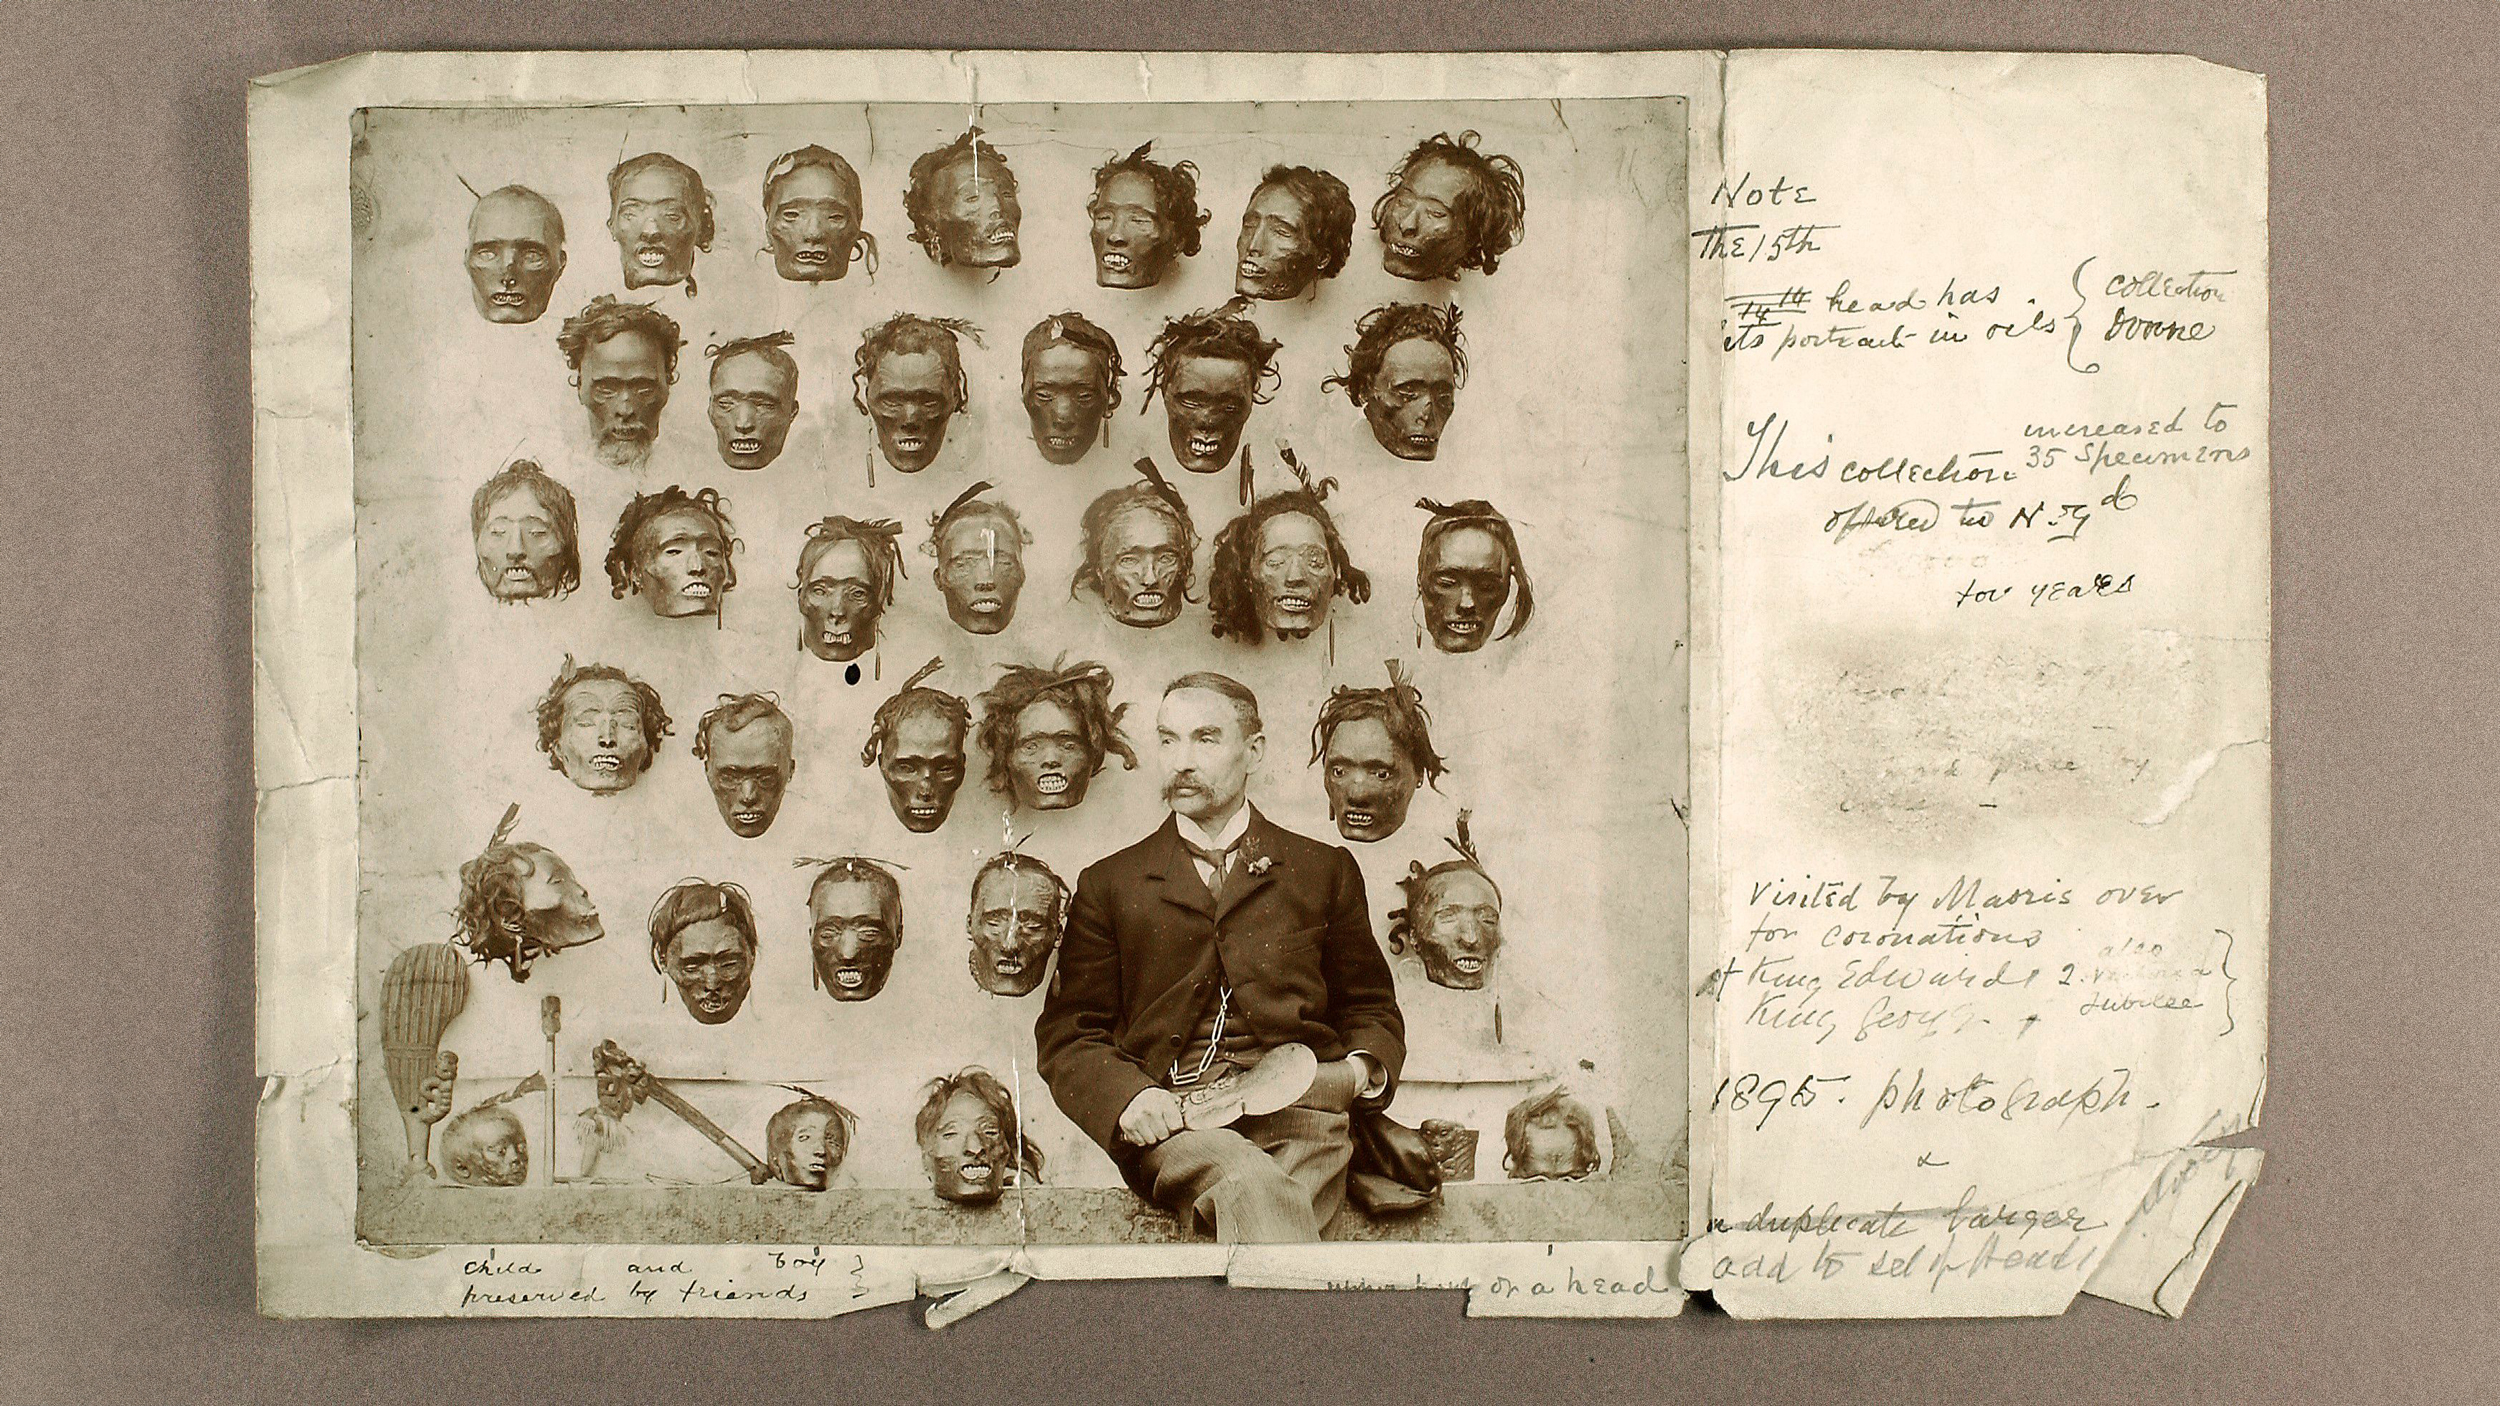 Note
The 15th
14 14 head has
its portrait in oils { collection
Donne
This collection increased to
35 Specimens
offered to N.Z d
for years
price by
visited by Maoris over
for coronations
of King Edward & 2. also
King George. Jubilee }
1895. photograph.
&
a duplicate larger
add to set of Heads
child and boy }
preserved by friends
of a head